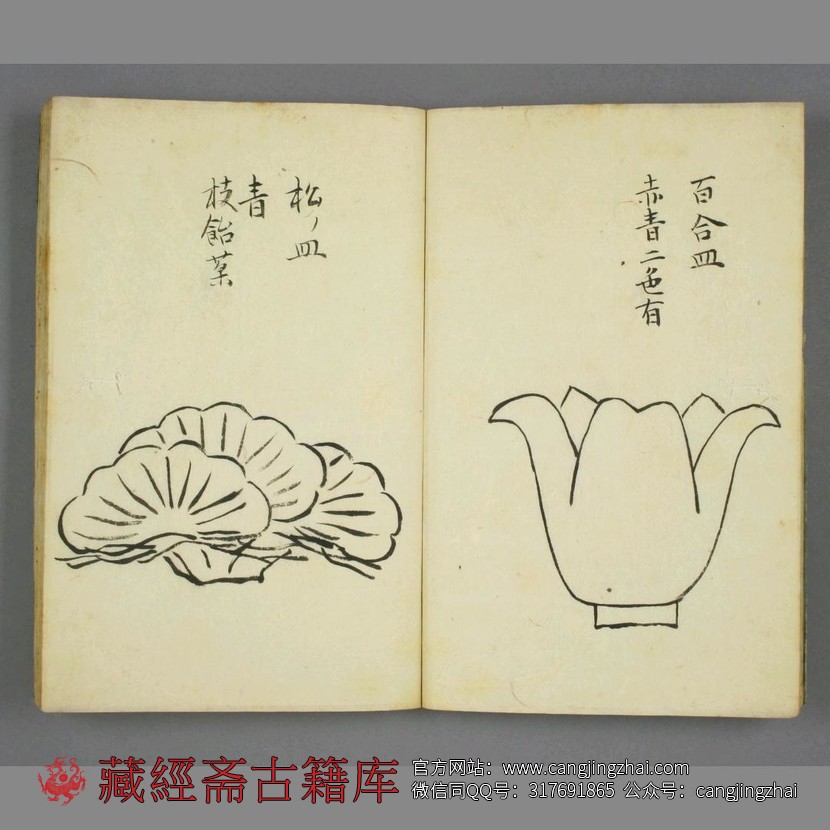 百合皿
赤青二色有
松ノ皿
青
枝飴菓
藏經斋古籍库
官方网站：www.cangjingzhai.com
微信同QQ号：317691865 公众号：cangjingzhai